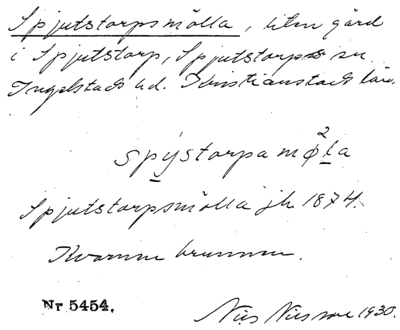 Spjutstorpsmölla, liten gård
i Spjutstorp, Spjutstorps sn
Ingelstads hd. Kristianstads län.
spýstorpa mø²la
Spjutstorpsmölla jk 1874.
Kvarnen brunnen.
Nr 5454.
Nils Nilsson 1930.